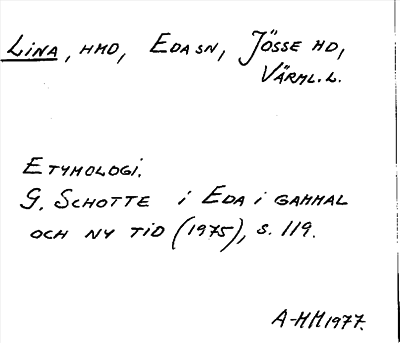 Lina, HMD, Eda sn, Jösse hd,
Värml. l.
Etymologi.
G. Schotte i Eda i gammal
och ny tid (1975), s. 119.
A-HM 1977.